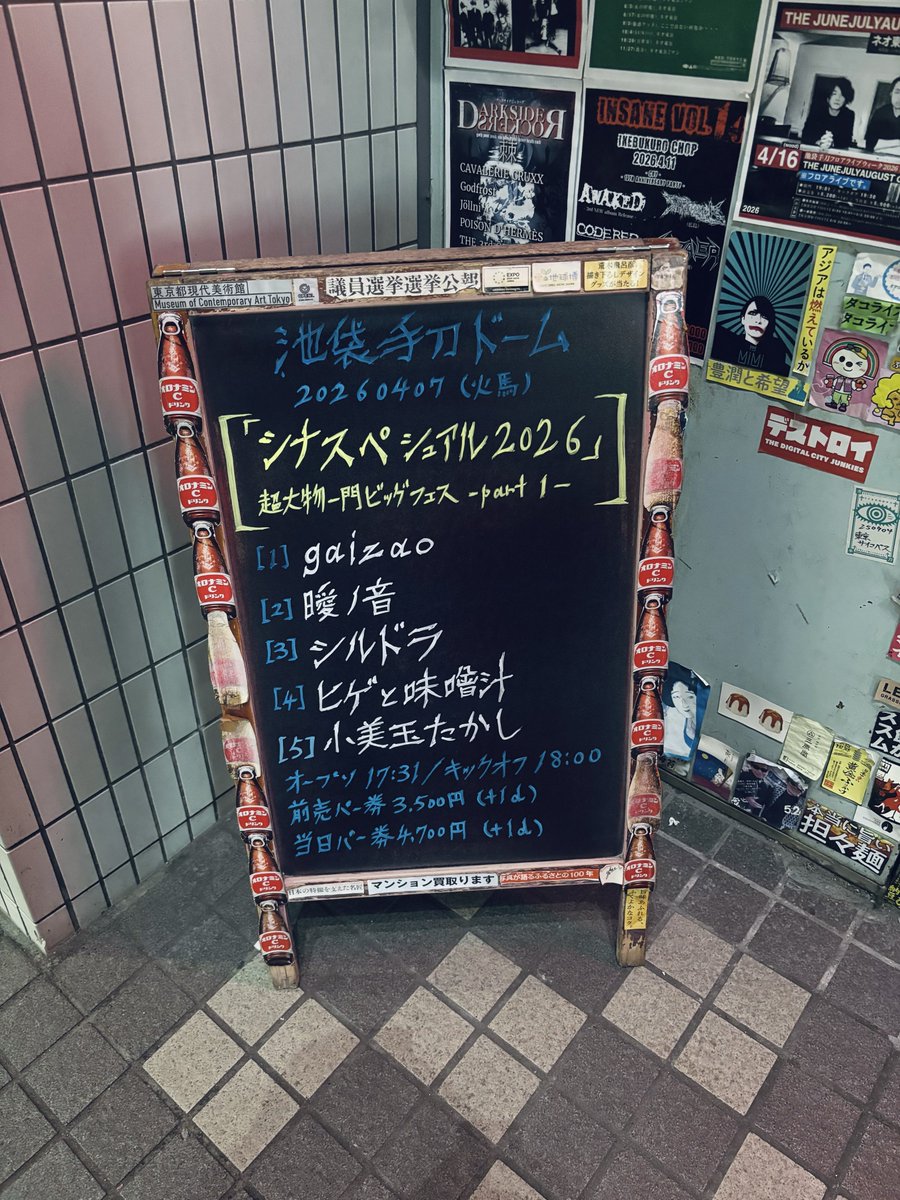 東京都現代美術館
Museum of Contemporary Art Tokyo
議員選挙選挙公報
EXPO
地球博
荒木飛呂彦
描き下ろしデザイン
グッズが当たる!
池袋手刀ドーム
20260407(火馬)
「シナスペシュアル2026」
超大物一門ビッグフェス -part 1-
[1] gaizao
[2] 曖ノ音
[3] シルドラ
[4] ヒゲと味噌汁
[5] 小美玉たかし
オープソ 17:31/キックオフ 18:00
前売パー券 3,500円 (+1d)
当日パー券 4,700円 (+1d)
マンション買取ります
オロナミン
C
ドリンク
DARKSIDE
ROCKERS
CAVALERIE CRUXX
Godfrost
Jöllni
POISON D'HERMÈS
INSANE VOL.
IKEBUKURO CHOP
2026.4.11
AWAKED
CODERED
THE JUNEJULYAUGUST
4/16
THE JUNEJULYAUGUST
2026
MIMI
豊潤と希望
アジアは燃えているか
タコライ
タコライ
デストロイ
THE DIGITAL CITY JUNKIES
250404
担々麺